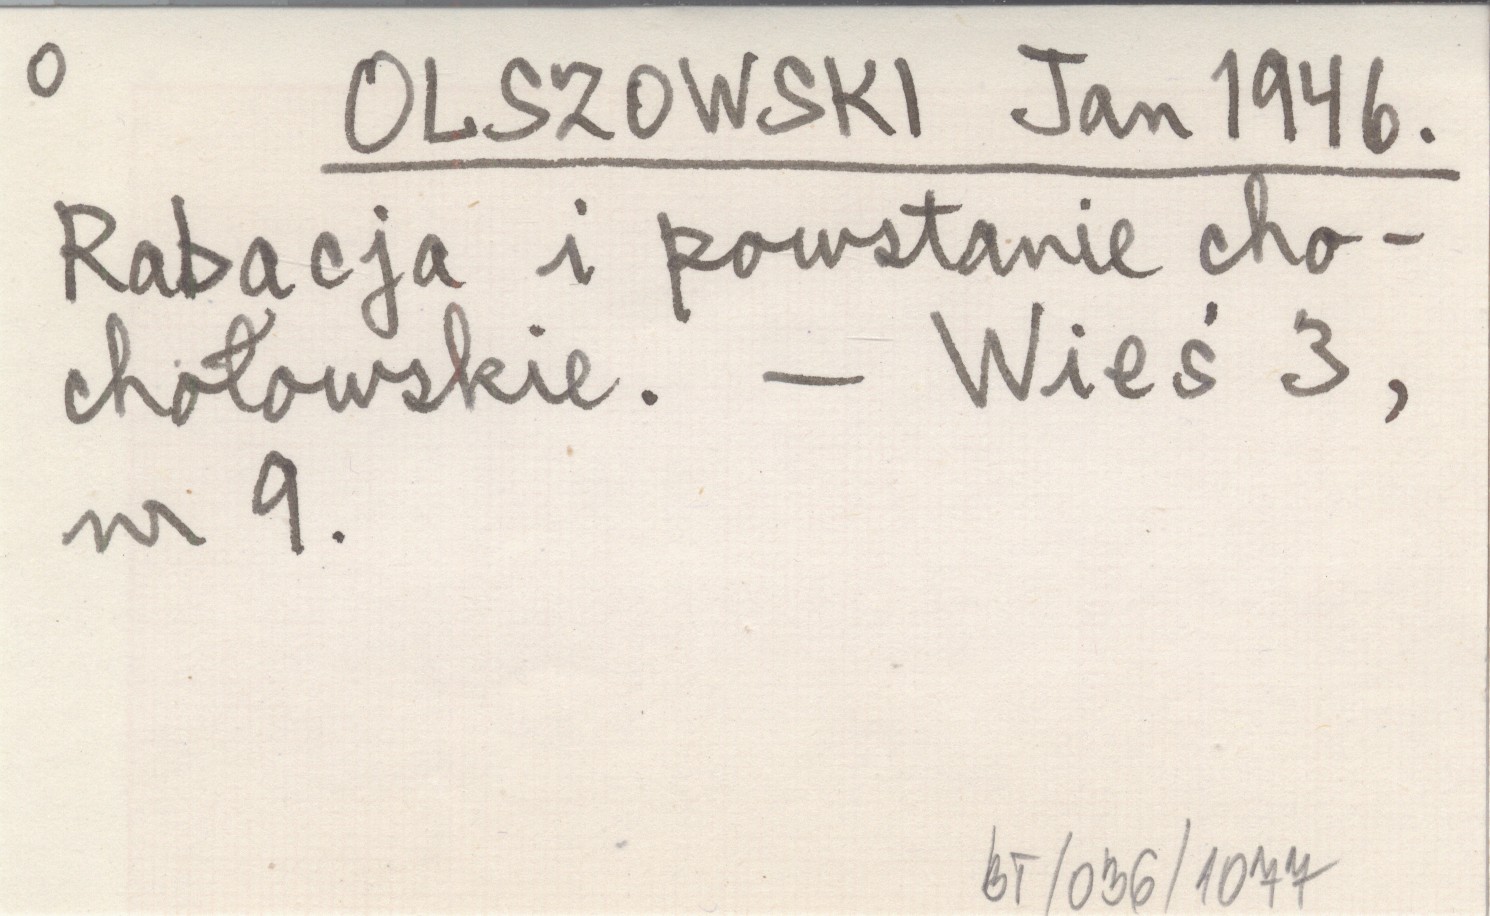 O OLSZOWSKI Jan 1946.
Rabacja i powstanie cho-
chołowskie. — Wieś 3,
nr 9.
BT/036/1077